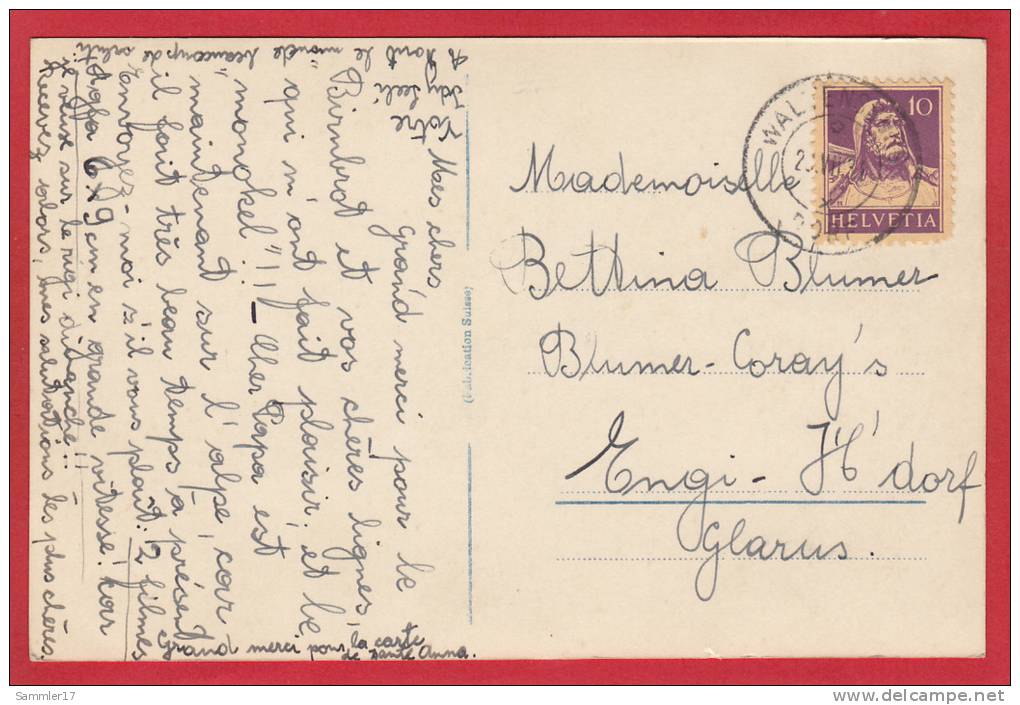 Mes chers
Grand merci pour le
Birnbrot et vos chères lignes,
qui m'ont fait plaisir, et le
"mongkel"!! – Cher Papa est
maintenant sur l'alpe, car
il fait très beau temps à présent
Envoyez-moi s'il vous plait: 2 filmes
Agfa 6x9 cm en grande vitesse! Car
je veux sur le rigi dimanche!!
Recevez alors, mes salutations les plus chères.
Votre
A tout le monde beaucoup de saluti.
Grand merci pour la carte
de tante Anna.
(Fabrication Suisse)
WALTEN
10
HELVETIA
Mademoiselle
Bettina Blumer
Blumer-Coray's
Engi-H'dorf
Glarus.
Sammler17
www.delcampe.net